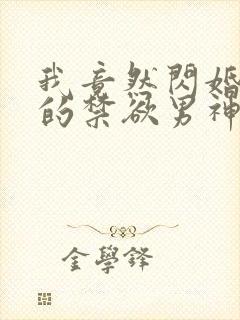 我竟然閃婚
的禁欲男神
金學鋒